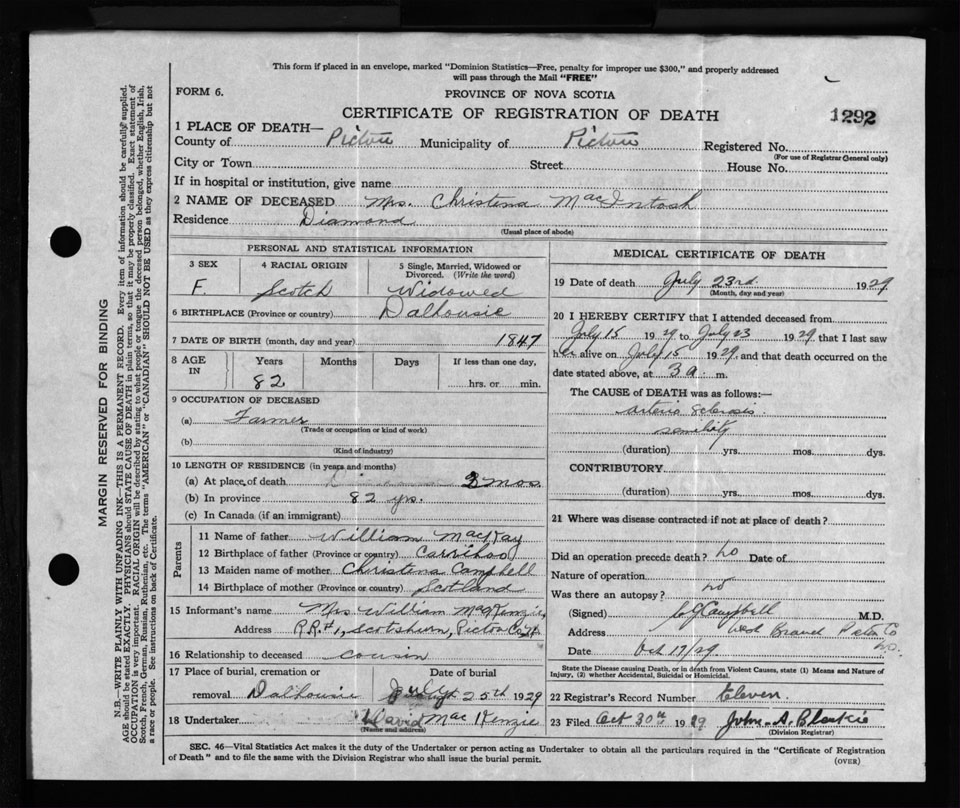 This form if placed in an envelope, marked "Dominion Statistics—Free, penalty for improper use $300," and properly addressed
will pass through the Mail "FREE"
FORM 6.
PROVINCE OF NOVA SCOTIA
CERTIFICATE OF REGISTRATION OF DEATH
1292
1 PLACE OF DEATH—
County of Pictou Municipality of Pictou Registered No.
(For use of Registrar General only)
City or Town Street House No.
If in hospital or institution, give name
2 NAME OF DECEASED Mrs. Christena MacIntosh
Residence Diamond
(Usual place of abode)
PERSONAL AND STATISTICAL INFORMATION
3 SEX F.
4 RACIAL ORIGIN Scotch
5 Single, Married, Widowed or Divorced. (Write the word) Widowed
6 BIRTHPLACE (Province or country) Dalhousie
7 DATE OF BIRTH (month, day and year) 1847
8 AGE IN Years Months Days If less than one day,
82 hrs. or min.
9 OCCUPATION OF DECEASED
(a) Farmer
(Trade or occupation or kind of work)
(b)
(Kind of industry)
10 LENGTH OF RESIDENCE (in years and months)
(a) At place of death mos.
(b) In province 82 yrs.
(c) In Canada (if an immigrant)
Parents
11 Name of father William MacKay
12 Birthplace of father (Province or country) Carriboo
13 Maiden name of mother Christena Campbell
14 Birthplace of mother (Province or country) Scotland
15 Informant's name Mrs William McKenzie
Address R.R.#1, Scotsburn, Pictou Co.
16 Relationship to deceased cousin
17 Place of burial, cremation or removal Dalhousie
Date of burial July 25th 1929
18 Undertaker David MacKenzie
(Name and address)
MEDICAL CERTIFICATE OF DEATH
19 Date of death July 23rd 1929
(Month, day and year)
20 I HEREBY CERTIFY that I attended deceased from
July 15 1929 to July 23 1929 that I last saw
her alive on July 15 1929, and that death occurred on
date stated above, at 3 a. m.
The CAUSE of DEATH was as follows:—
arterio sclerosis
senility
(duration) yrs. mos. dys.
CONTRIBUTORY
(duration) yrs. mos. dys.
21 Where was disease contracted if not at place of death?
Did an operation precede death? no Date of
Nature of operation
Was there an autopsy? no
(Signed) Campbell M.D.
Address West Branch Pictou Co
N.S.
Date Oct 17/29.
State the Disease causing Death, or in death from Violent Causes, state (1) Means and Nature of
Injury, (2) whether Accidental, Suicidal or Homicidal.
22 Registrar's Record Number Eleven.
23 Filed Oct 30th 1929 John A. Blaikie
(Division Registrar)
SEC. 46—Vital Statistics Act makes it the duty of the Undertaker or person acting as Undertaker to obtain all the particulars required in the "Certificate of Registration
of Death" and to file the same with the Division Registrar who shall issue the burial permit.
(OVER)
MARGIN RESERVED FOR BINDING
N.B.—WRITE PLAINLY WITH UNFADING INK—THIS IS A PERMANENT RECORD. Every item of information should be carefully supplied.
AGE should be stated EXACTLY. PHYSICIANS should STATE CAUSE OF DEATH in plain terms, so that it may be properly classified. Exact statement of
OCCUPATION is very important. RACIAL ORIGIN will be described by stating to what people or tongue the deceased person belonged, whether English, Irish,
Scotch, French, German, Russian, Ruthenian, etc. The terms "AMERICAN" or "CANADIAN" SHOULD NOT BE USED as they express citizenship but not
a race or people. See instructions on back of Certificate.